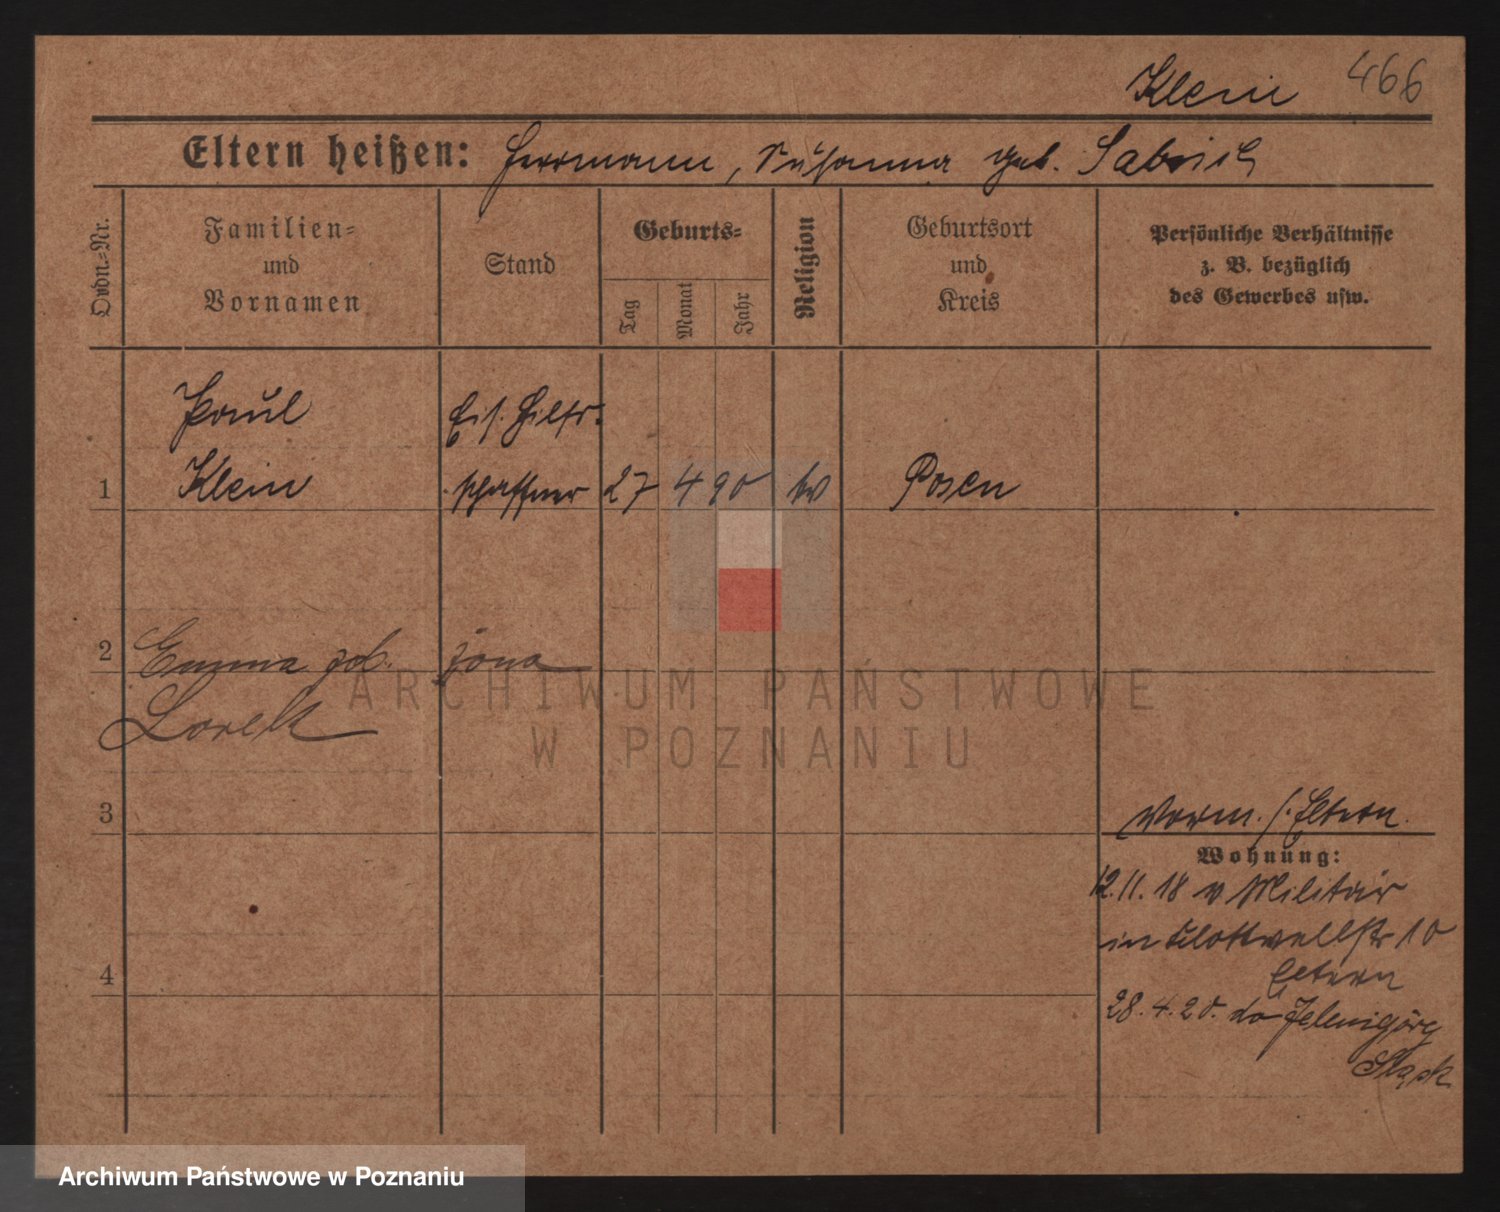 Klein 466
Eltern heißen: Herrmann, Susanna geb. Sabsich
Ordn.-Nr.
Familien-
und
Vornamen
Stand
Geburts-
Tag
Monat
Jahr
Religion
Geburtsort
und
Kreis
Persönliche Verhältnisse
z. B. bezüglich
des Gewerbes usw.
Paul Eis. Hilfs-
1 Klein schaffner 27 4 90 Posen
2 Emma geb. żona
Lorek
ARCHIWUM PAŃSTWOWE
W POZNANIU
3 Vorm. s. Eltern.
Wohnung:
12.11.18 v Militär
in Flottwellstr 10
4 Eltern
28.4.20. do Jelenigórę
Śląsk
Archiwum Państwowe w Poznaniu